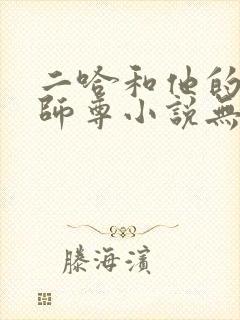 二哈和他的
師尊小說無
滕海濱